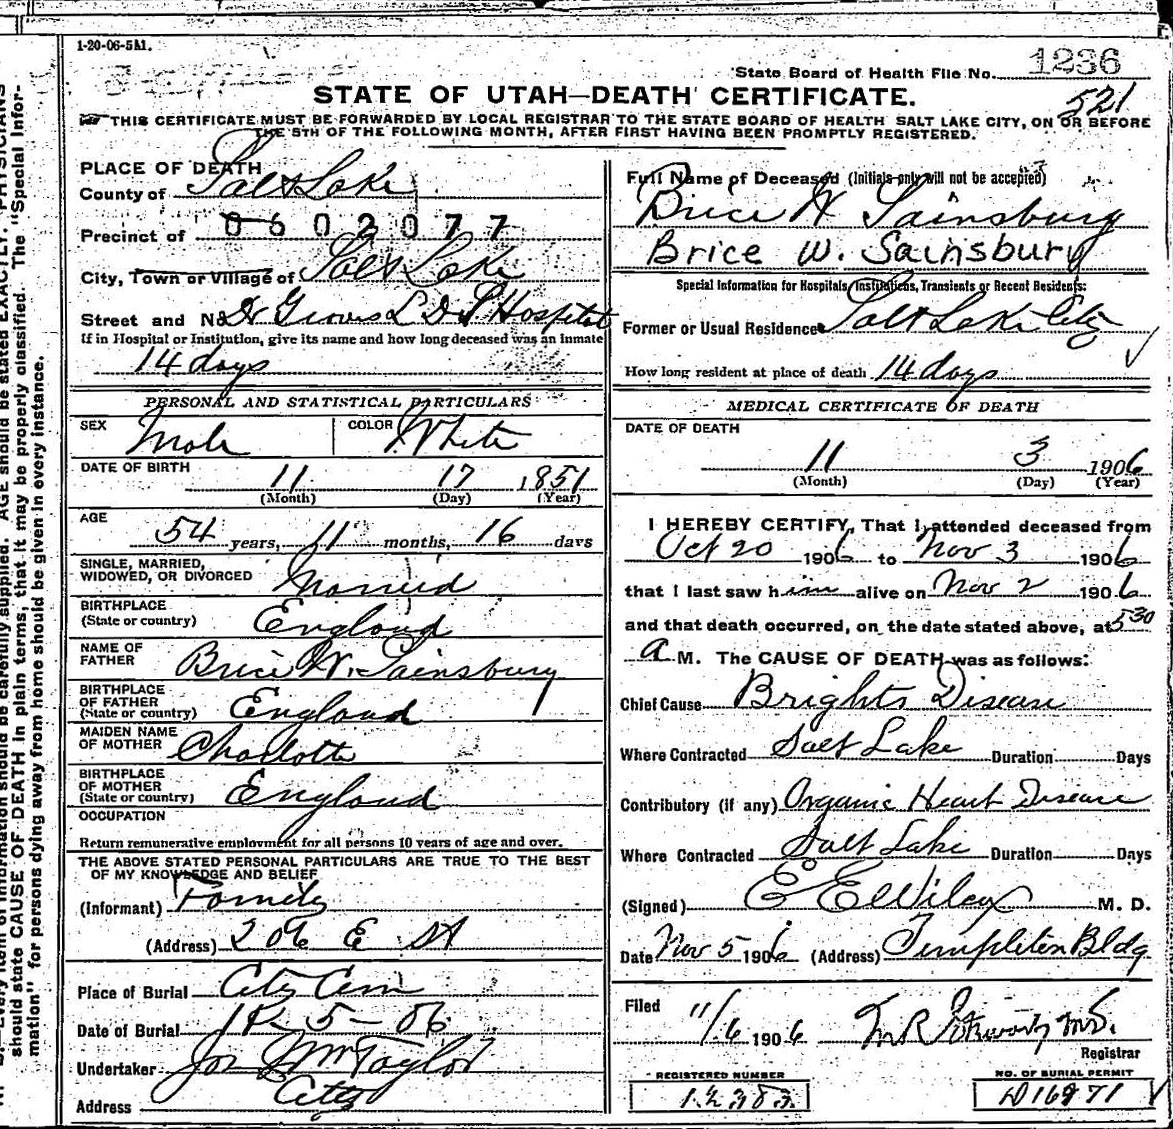 1-20-06-5M.
State Board of Health File No. 1236
521
STATE OF UTAH—DEATH CERTIFICATE.
THIS CERTIFICATE MUST BE FORWARDED BY LOCAL REGISTRAR TO THE STATE BOARD OF HEALTH SALT LAKE CITY, ON OR BEFORE
THE 5TH OF THE FOLLOWING MONTH, AFTER FIRST HAVING BEEN PROMPTLY REGISTERED.
PLACE OF DEATH
County of Salt Lake
Precinct of 0602077
City, Town or Village of Salt Lake
Street and No. Dr Groves L D S Hospital
If in Hospital or Institution, give its name and how long deceased was an inmate
14 days
PERSONAL AND STATISTICAL PARTICULARS
SEX Male COLOR White
DATE OF BIRTH
11 17 1851
(Month) (Day) (Year)
AGE
54 years, 11 months, 16 days
SINGLE, MARRIED,
WIDOWED, OR DIVORCED Married
BIRTHPLACE
(State or country) England
NAME OF
FATHER Brice W. Sainsbury
BIRTHPLACE
OF FATHER
(State or country) England
MAIDEN NAME
OF MOTHER Charlotte
BIRTHPLACE
OF MOTHER
(State or country) England
OCCUPATION
Return remunerative employment for all persons 10 years of age and over.
THE ABOVE STATED PERSONAL PARTICULARS ARE TRUE TO THE BEST
OF MY KNOWLEDGE AND BELIEF
(Informant) Family
(Address) 206 E St
Place of Burial City Cem
Date of Burial 11-5-06
Undertaker Jos Wm Taylor
Address City
Full Name of Deceased (Initials only will not be accepted)
Brice W Sainsbury
Brice W. Sainsbury
Special Information for Hospitals, Institutions, Transients or Recent Residents:
Former or Usual Residence Salt Lake City
How long resident at place of death 14 days
MEDICAL CERTIFICATE OF DEATH
DATE OF DEATH
11 3 1906
(Month) (Day) (Year)
I HEREBY CERTIFY, That I attended deceased from
Oct 20 1906 to Nov 3 1906
that I last saw him alive on Nov 2 1906
and that death occurred, on the date stated above, at 530
A M. The CAUSE OF DEATH was as follows:
Chief Cause Brights Disease
Where Contracted Salt Lake Duration Days
Contributory (if any) Organic Heart Disease
Where Contracted Salt Lake Duration Days
(Signed) E E Wilcox M. D.
Date Nov 5 1906 (Address) Templeton Bldg
Filed 11/6 1906 M R
Registrar
REGISTERED NUMBER
NO. OF BURIAL PERMIT
12383
D16871
AGE should be stated EXACTLY. PHYSICIANS
should state CAUSE OF DEATH in plain terms, that it may be properly classified. The "Special Infor-
mation" for persons dying away from home should be given in every instance.